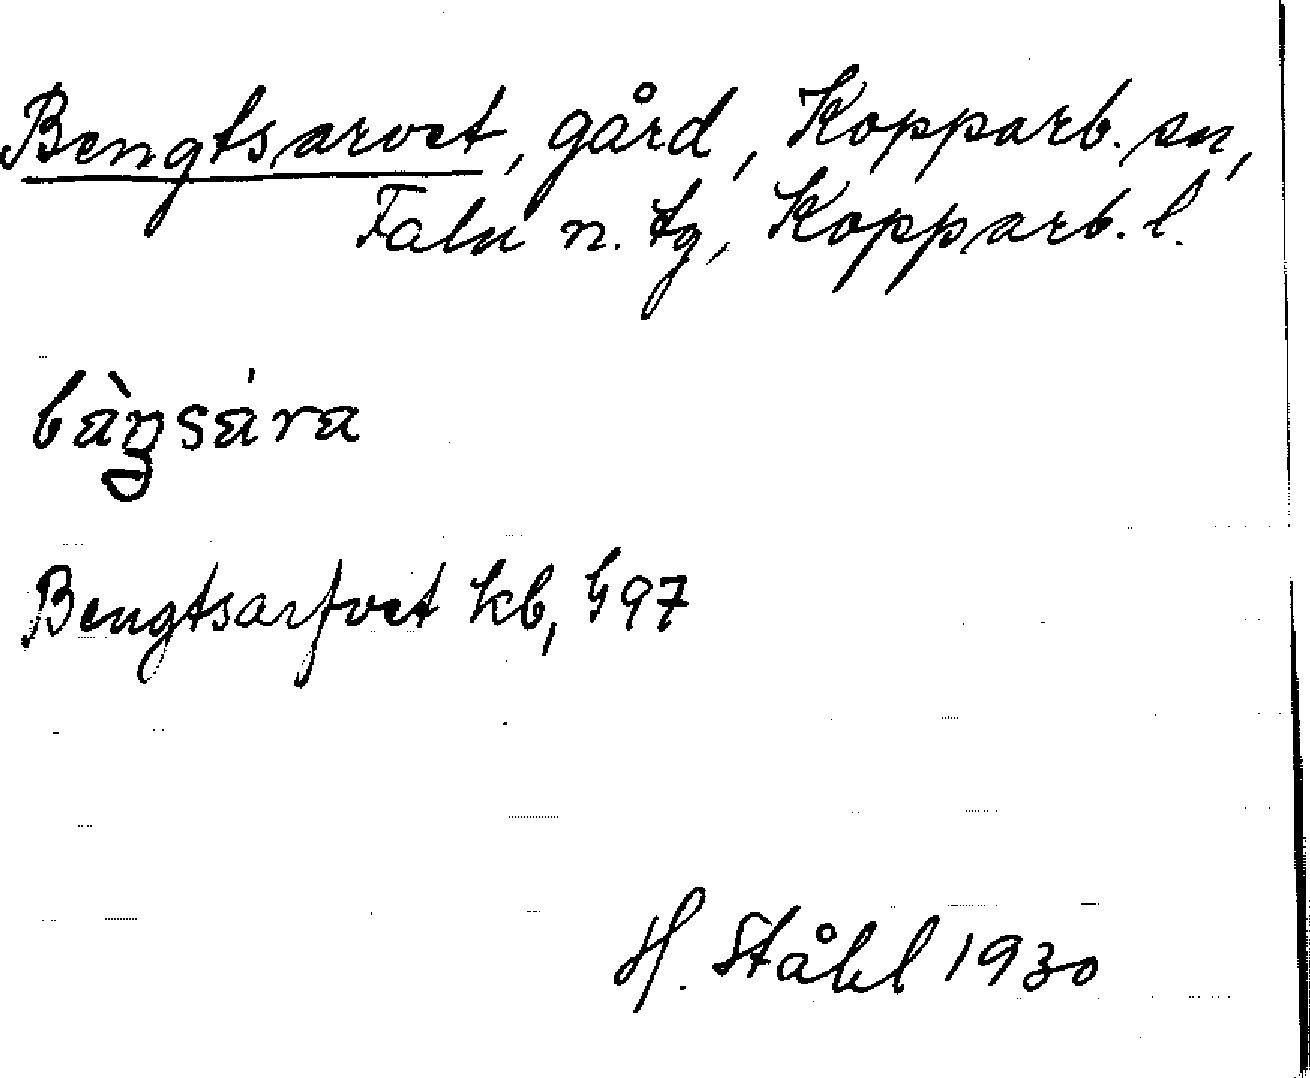 Bengtsarvet, gård, Kopparb. sn,
Falu n. tg, Kopparb. l.
Bengtsarfvet kb, G97
H. Ståhl 1930